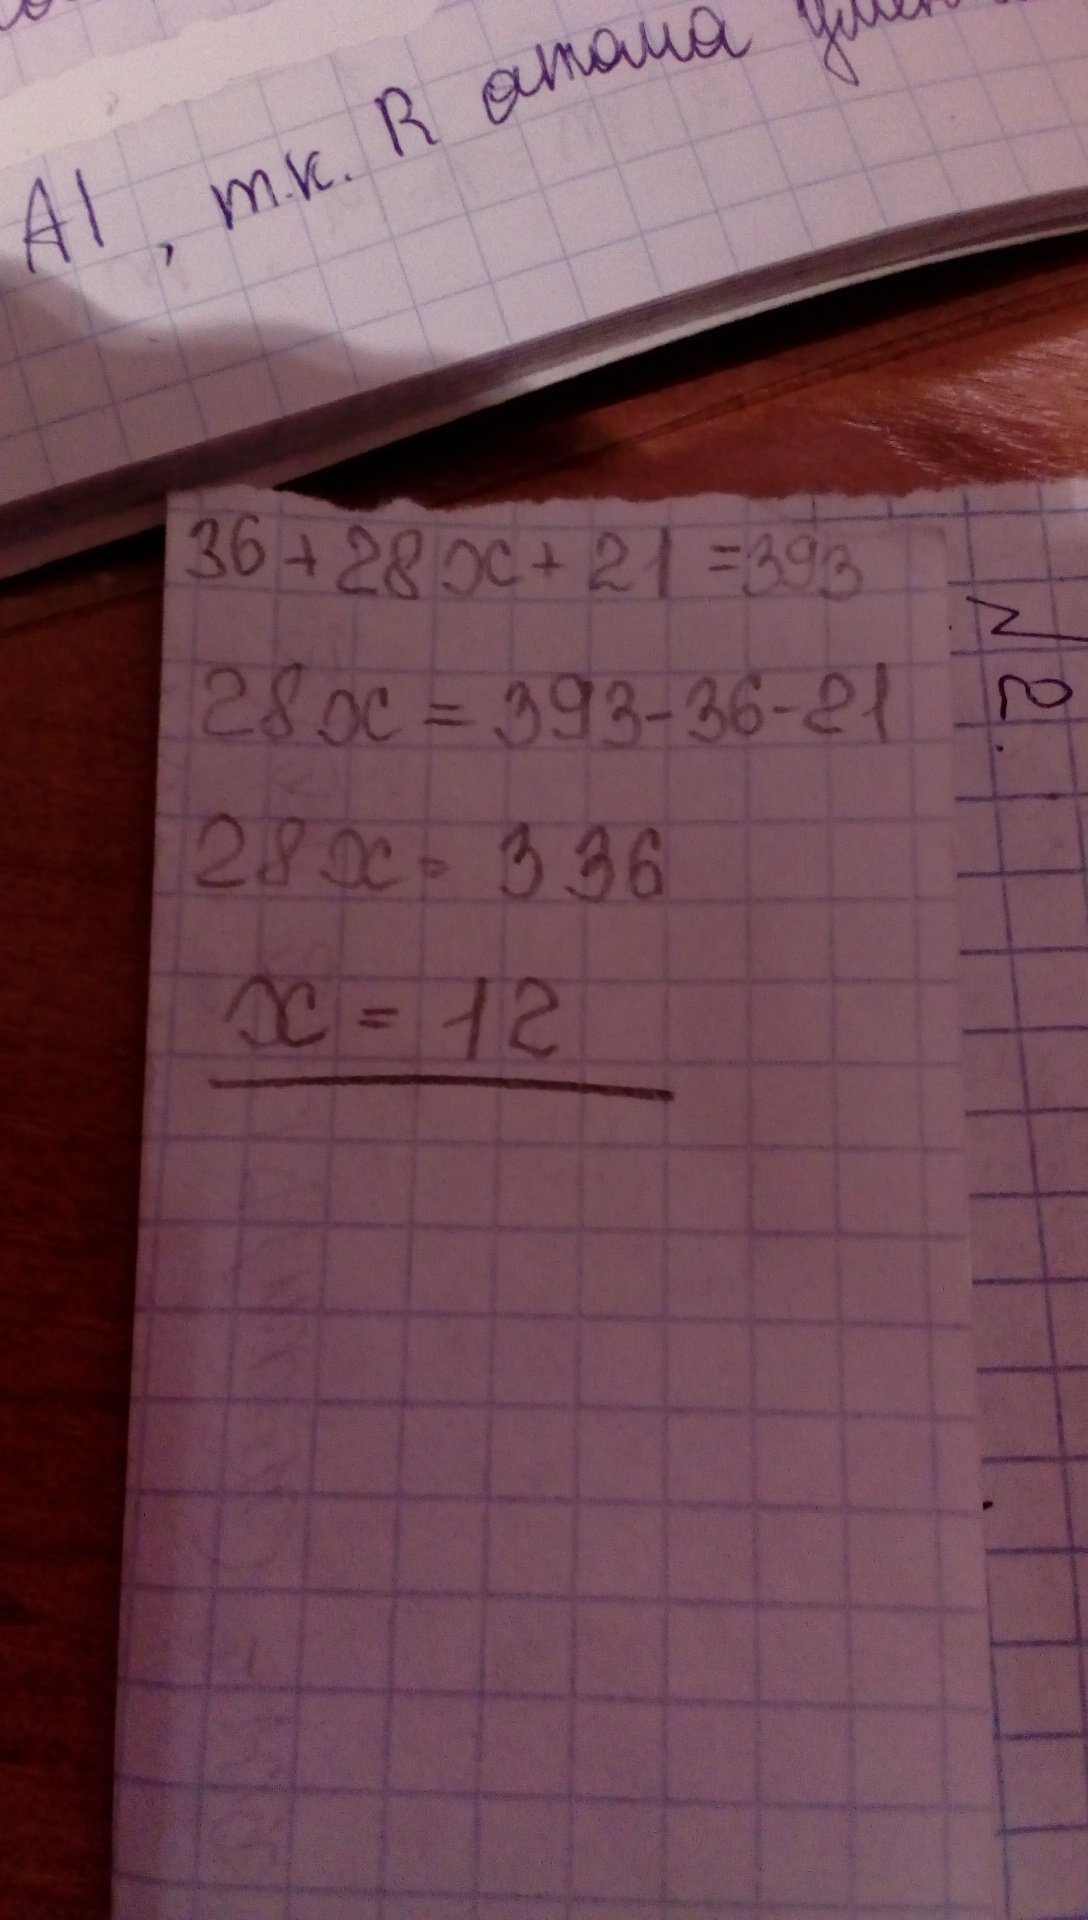 Al, т.к. R атома
36 + 28x + 21 = 393
28x = 393 - 36 - 21
28x = 336
x = 12
√2.